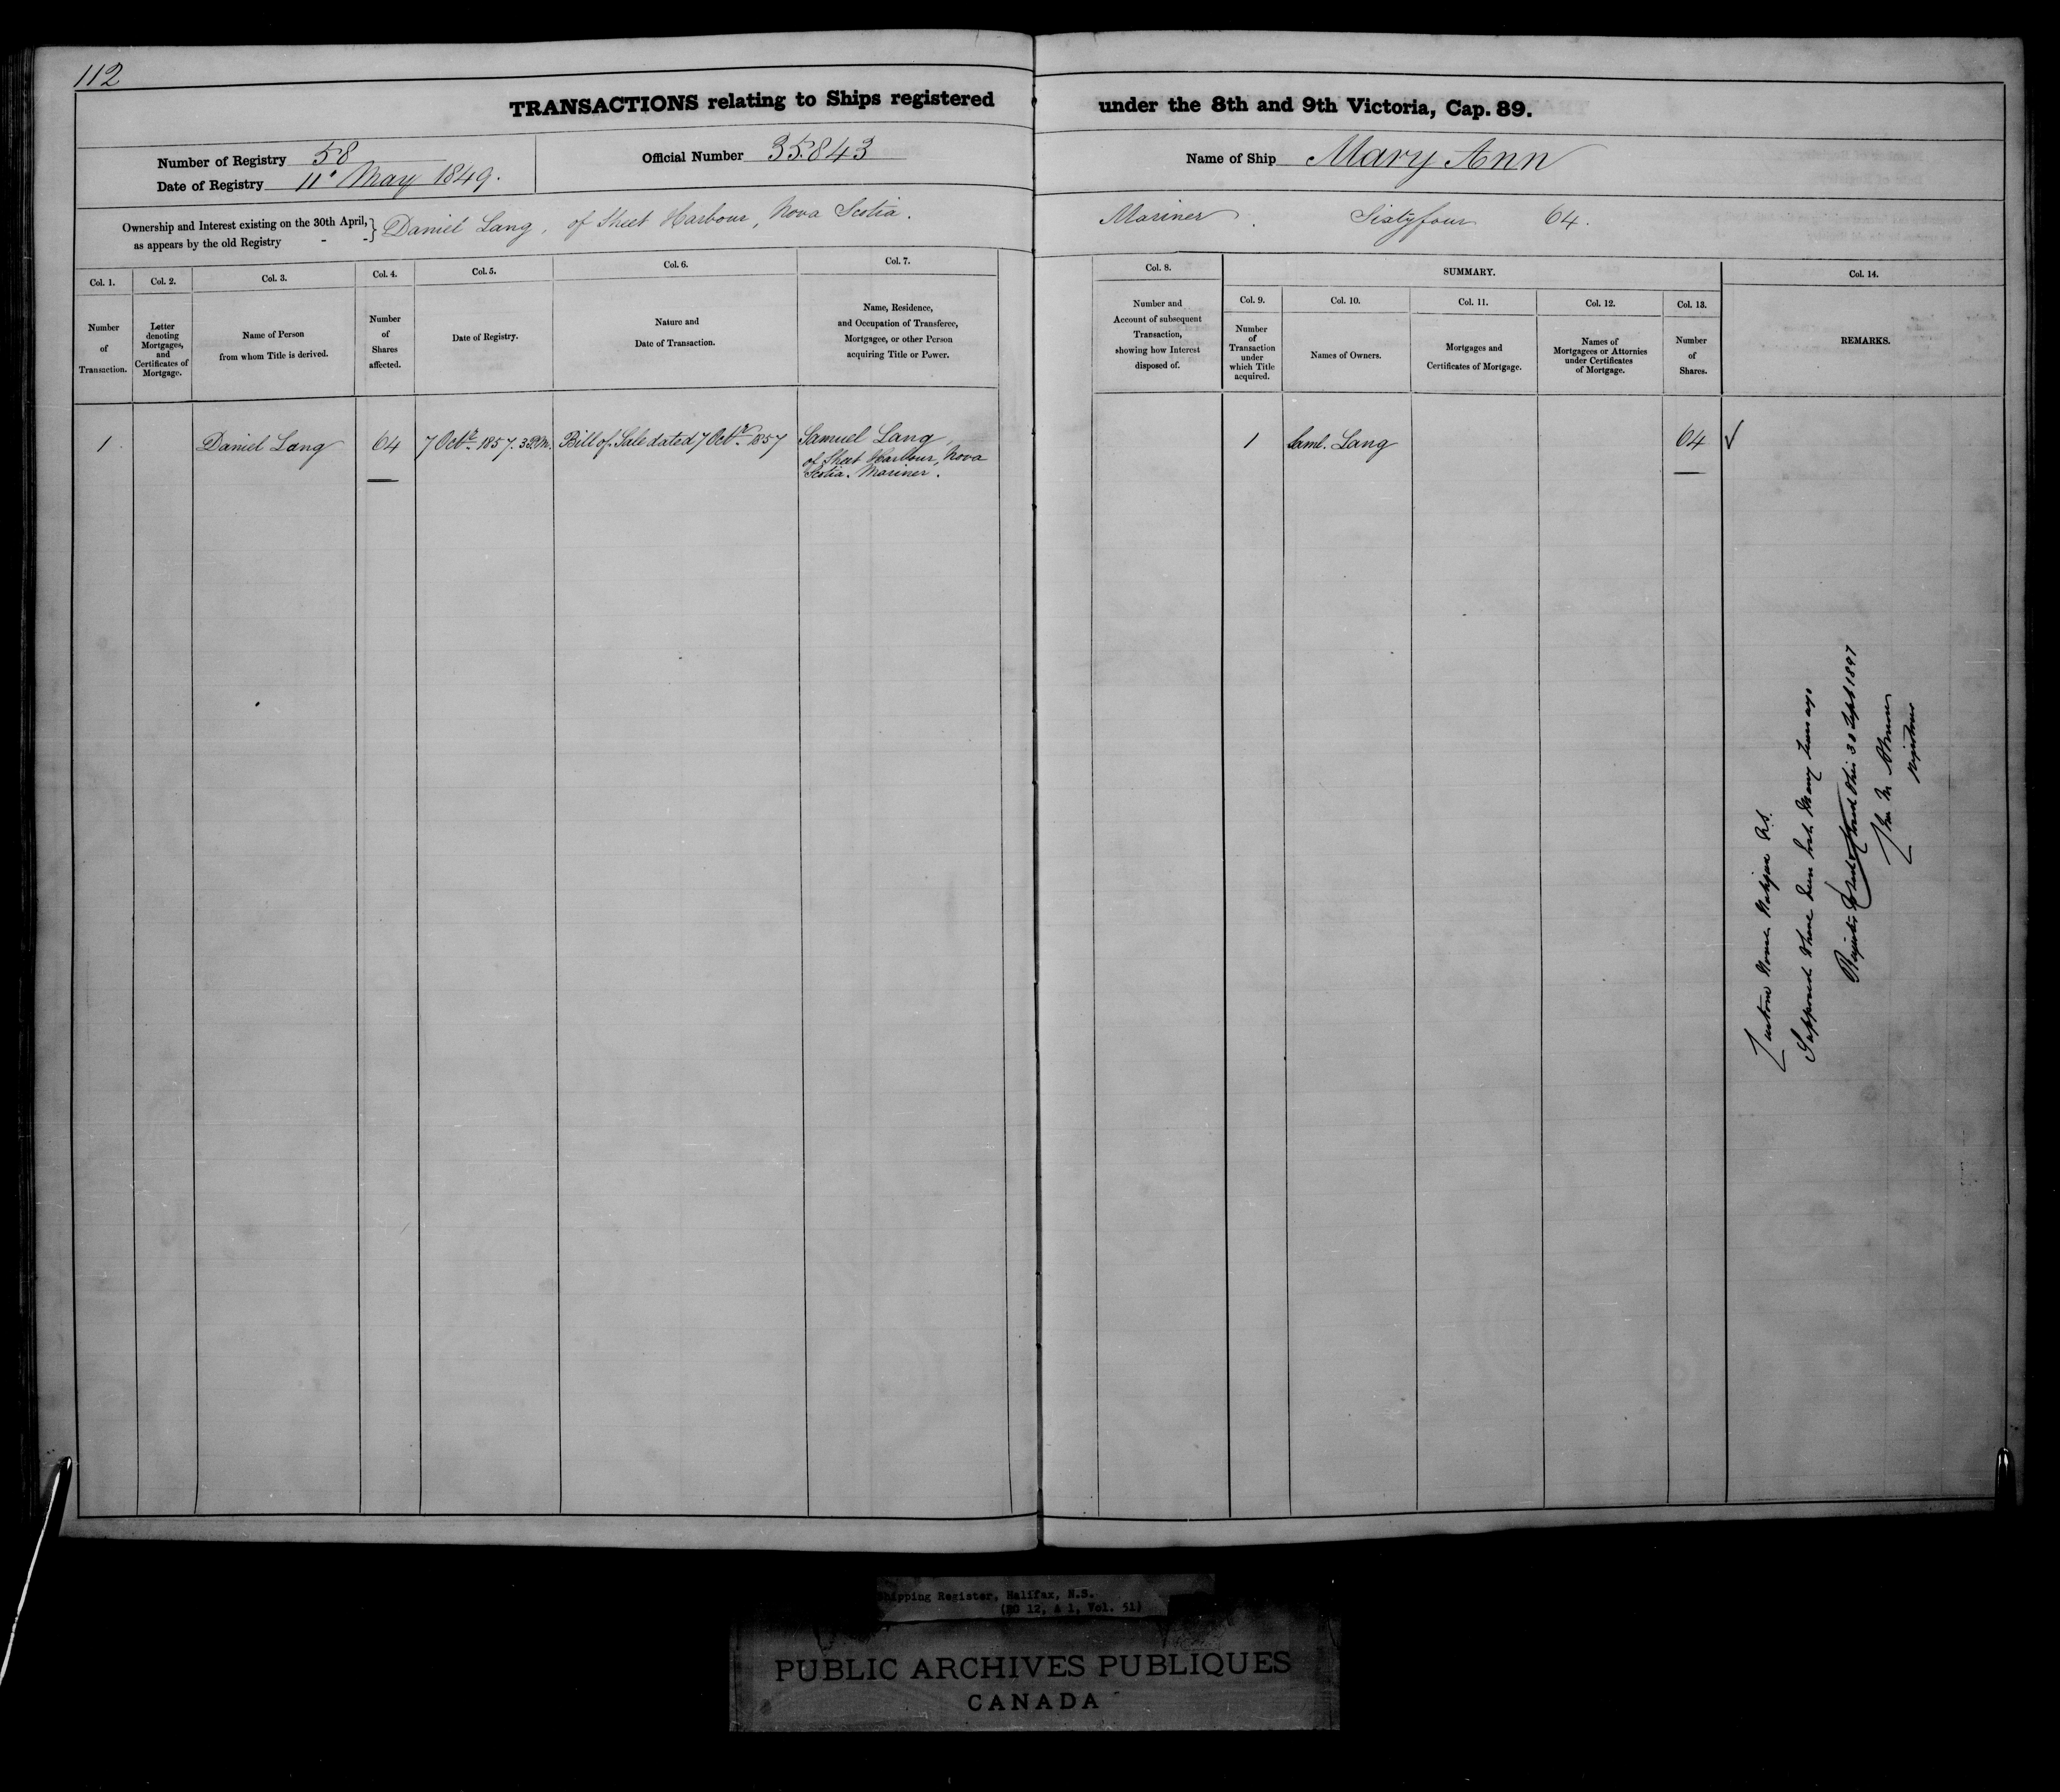 112
TRANSACTIONS relating to Ships registered under the 8th and 9th Victoria, Cap. 89.
Number of Registry 58
Date of Registry 11 May 1849.
Official Number 35.843
Name of Ship Mary Ann
Ownership and Interest existing on the 30th April,
as appears by the old Registry - -} Daniel Lang, of Sheet Harbour, Nova Scotia. Mariner. Sixtyfour 64.
Col. 1.
Number
of
Transaction.
Col. 2.
Letter
denoting
Mortgages,
and
Certificates of
Mortgage.
Col. 3.
Name of Person
from whom Title is derived.
Col. 4.
Number
of
Shares
affected.
Col. 5.
Date of Registry.
Col. 6.
Nature and
Date of Transaction.
Col. 7.
Name, Residence,
and Occupation of Transferee,
Mortgagee, or other Person
acquiring Title or Power.
Col. 8.
Number and
Account of subsequent
Transaction,
showing how Interest
disposed of.
SUMMARY.
Col. 9.
Number
of
Transaction
under
which Title
acquired.
Col. 10.
Names of Owners.
Col. 11.
Mortgages and
Certificates of Mortgage.
Col. 12.
Names of
Mortgagees or Attornies
under Certificates
of Mortgage.
Col. 13.
Number
of
Shares.
Col. 14.
REMARKS.
1 Daniel Lang 64 7 Octr. 1857. 3 P.M. Bill of Sale dated 7 Octr. 1857 Samuel Lang,
of Sheet Harbour, Nova
Scotia. Mariner.
1 Saml. Lang 64 ✓
Custom House Halifax N.S.
Supposed to have been lost many years ago
Registry closed this 30 Sept 1897
Registrar
Shipping Register, Halifax, N.S.
(RG 12, A 1, Vol. 51)
PUBLIC ARCHIVES PUBLIQUES
CANADA